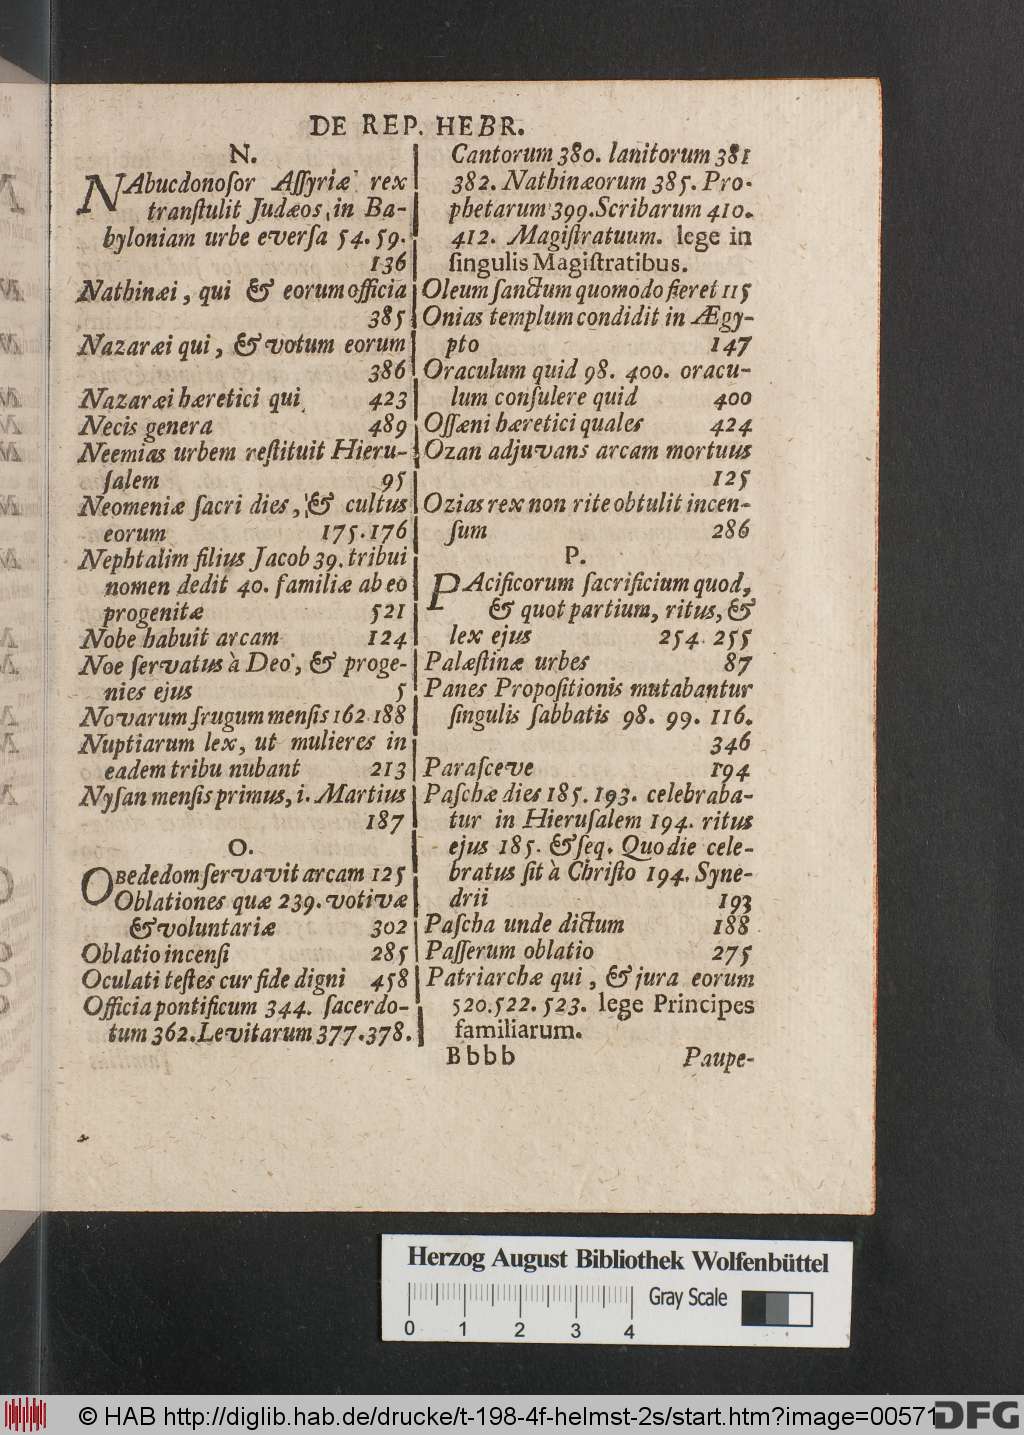 DE REP. HEBR.
N.
NAbucdonoſor Aſſyriæ rex
tranſtulit Judæos in Ba-
byloniam urbe everſa 54. 59.
136
Nathinæi, qui & eorum officia
385
Nazaræi qui, & votum eorum
386
Nazaræi hæretici qui 423
Necis genera 489
Neemias urbem reſtituit Hieru-
ſalem 95
Neomeniæ ſacri dies, & cultus
eorum 175. 176
Nephtalim filius Jacob 39. tribui
nomen dedit 40. familiæ ab eo
progenitæ 521
Nobe habuit arcam 124
Noe ſervatus à Deo, & proge-
nies ejus 5
Novarum frugum menſis 162 188
Nuptiarum lex, ut mulieres in
eadem tribu nubant 213
Nyſan menſis primus, i. Martius
187
O.
OBededom ſervavit arcam 125
Oblationes quæ 239. votivæ
& voluntariæ 302
Oblatio incenſi 285
Oculati teſtes cur fide digni 458
Officia pontificum 344. ſacerdo-
tum 362. Levitarum 377. 378.
Cantorum 380. Ianitorum 381
382. Nathinæorum 385. Pro-
phetarum 399. Scribarum 410.
412. Magiſtratuum. lege in
ſingulis Magiſtratibus.
Oleum ſanctum quomodo fieret 115
Onias templum condidit in Ægy-
pto 147
Oraculum quid 98. 400. oracu-
lum conſulere quid 400
Oſſæni hæretici quales 424
Ozan adjuvans arcam mortuus
125
Ozias rex non rite obtulit incen-
ſum 286
P.
PAcificorum ſacrificium quod,
& quot partium, ritus, &
lex ejus 254. 255
Palæſtinæ urbes 87
Panes Propoſitionis mutabantur
ſingulis ſabbatis 98. 99. 116.
346
Paraſceve 194
Paſchæ dies 185. 193. celebraba-
tur in Hieruſalem 194. ritus
ejus 185. & ſeq. Quo die cele-
bratus ſit à Chriſto 194. Syne-
drii 193
Paſcha unde dictum 188
Paſſerum oblatio 275
Patriarchæ qui, & jura eorum
520. 522. 523. lege Principes
familiarum.
Bbbb Paupe-
Herzog August Bibliothek Wolfenbüttel
Gray Scale
0 1 2 3 4
© HAB http://diglib.hab.de/drucke/t-198-4f-helmst-2s/start.htm?image=00571
DFG